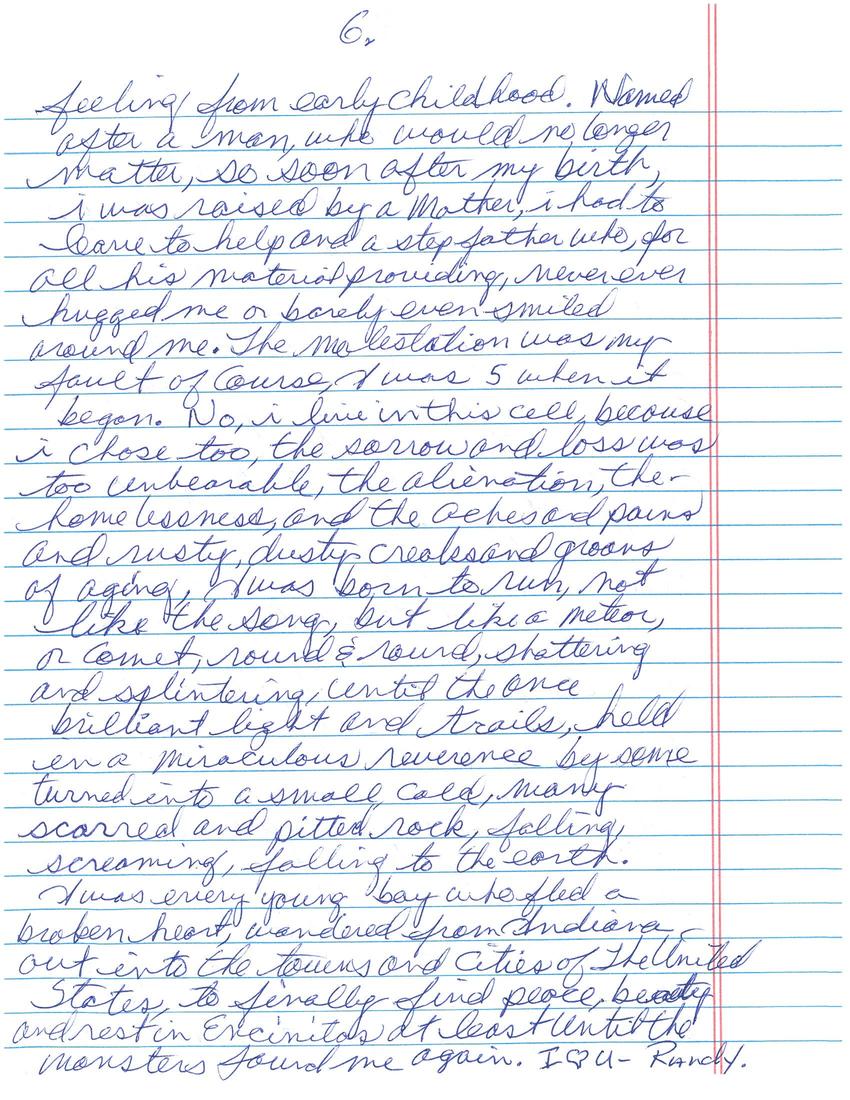 6.
feeling from early childhood. Named
after a man, who would no longer
matter, so soon after my birth,
i was raised by a Mother, i had to
leave to help and a step father who, for
all his material providing, never ever
hugged me or barely even smiled
around me. The molestation was my
fault of Course, I was 5 when it
began. No, i live in this cell, because
i chose too, the sorrow and loss was
too unbearable, the alienation, the
homelessness, and the aches and pains
and rusty, dusty creaks and groans
of aging, I was born to run, not
like the song, but like a meteor,
or comet, round & round, shattering
and splintering, until the once
brilliant light and trails, held
in a miraculous reverence by some
turned into a small cold, many
scarred and pitted rock, falling,
screaming, falling to the earth.
I was every young boy who fled a
broken heart, wandered from Indiana
out into the towns and Cities of The United
States, to finally find peace, beauty
and rest in Encinitas at least until the
monsters found me again. I ♡ U - Randy.